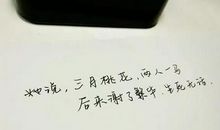 她说,三月桃花,两人一马
后来谢了繁华,生死无话